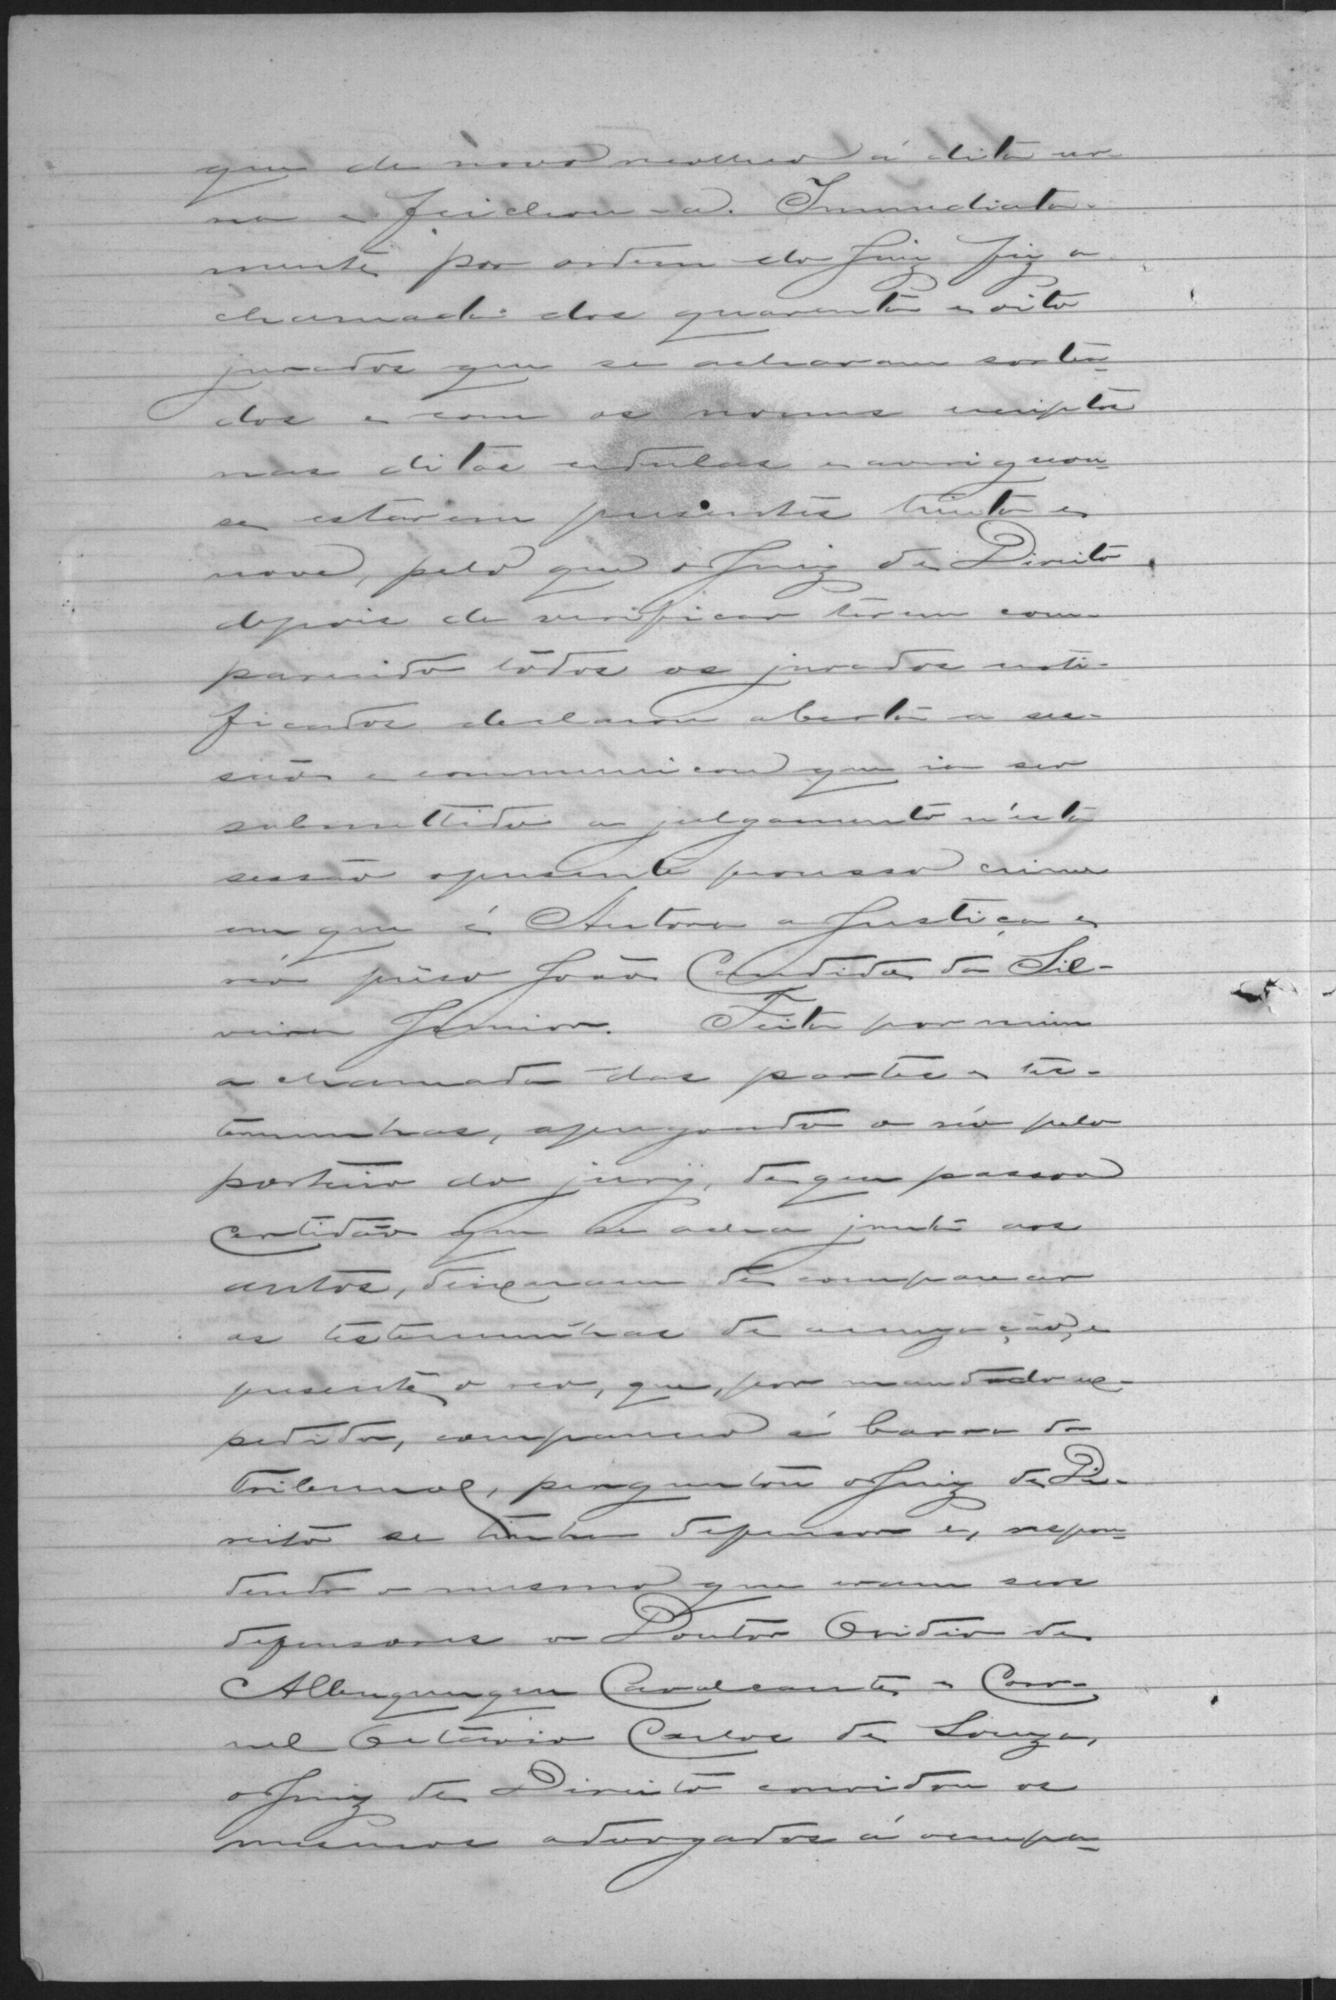 que de novo recolheo á dita ur-
na e feichou-a. Immediata-
mente por ordem do Juiz fiz a
chamada dos quarenta e oito
jurados que se acharam sortea-
dos e com os nomes escriptos
nas ditas cedulas e averiguou-
se estarem presentes trinta e
nove, pelo que o Juiz de Direito
depois de verificar terem com-
parecido todos os jurados noti-
ficados declarou aberta a ses-
são e communicou que ia ser
submettido a julgamento n'esta
sessão o presente processo crime
em que é Autora a Justiça e
réo prêso João Candido da Sil-
veira Junior. Feita por mim
a chamada das partes e tes-
temunhas, apregoando o réo pelo
porteiro do jury, de que passou
certidão que se acha junta aos
autos, deixaram de comparecer
as testemunhas de accusação, e
presente o reo, que, por mandado ex-
pedido, compareceo á barra do
tribunal, perguntou o Juiz de Di-
reito se tinha defensor e, respon-
dendo o mesmo que eram seos
defensores o Doutor Ovidio de
Albuquerque Cavalcante e Coro-
nel Octavio Carlos de Souza,
o Juiz de Direito convidou os
mesmos advogados á occupa-